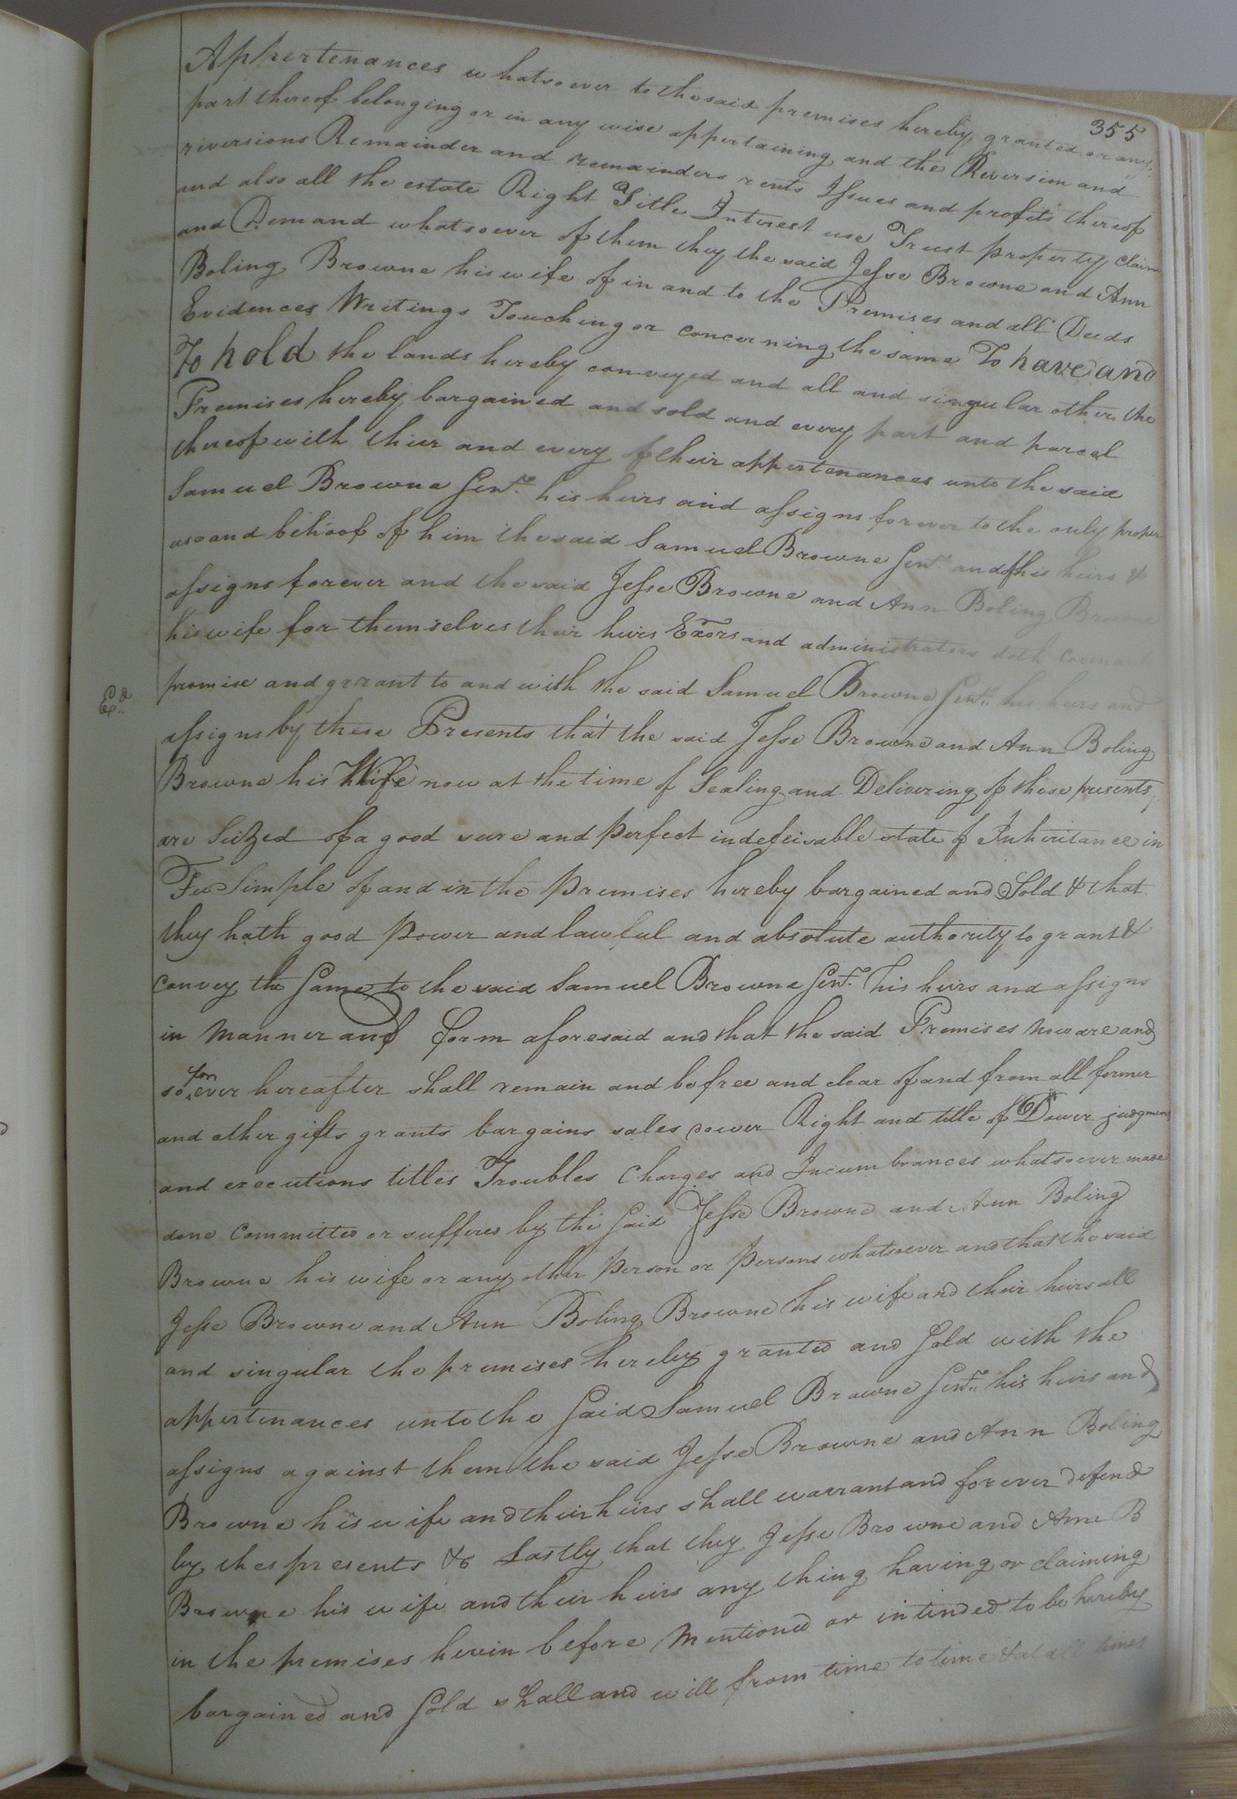 355
Aphertenances whatsoever to the said premises hereby granted or any
part thereof belonging or in any wise appertaining and the Reversion and
riversions Remainder and remainders rents Issues and profits thereof
and also all the estate Right Title Interest use Trust property claim
and Demand whatsoever of them they the said Jesse Browne and Ann
Boling Browne his wife of in and to the Premises and all Deeds
Evidences Writings Touching or concerning the same To have and
To hold the lands hereby conveyed and all and singular other the
Premises hereby bargained and sold and every part and parcel
thereof with thier and every of their appertenances unto the said
Samuel Browne Senr. his heirs and assigns forever to the only proper
use and behoof of him the said Samuel Browne Senr. and his heirs &
assigns forever and the said Jesse Browne and Ann Boling Browne
his wife for themselves their heirs Exors and administrators doth covenant
promise and grant to and with the said Samuel Browne Senr. his heirs and
Ed.
assigns by these Presents that the said Jesse Browne and Ann Boling
Browne his Wife now at the time of Sealing and Delivering of these presents,
are Seized of a good sure and perfect indefeisable estate of Inheritance in
Fee Simple of and in the premises hereby bargained and Sold & that
they hath good Power and lawful and absolute authority to grant &
convey the Same to the said Samuel Browne Senr. his heirs and assigns
in manner and form aforesaid and that the said Premises now are and
so for ever hereafter shall remain and be free and clear of and from all former
and other gifts grants bargains sales Right and title of Dower judgment
and executions titles Troubles Charges and Incumbrances whatsoever made
done Committed or suffered by the Said Jesse Browne and Ann Boling
Browne his wife or any other Person or Persons whatsoever and that the said
Jesse Browne and Ann Boling Browne his wife and their heirs all
and singular the premises hereby granted and Sold with the
appertenances unto the Said Samuel Browne Senr. his heirs and
assigns against them the said Jesse Browne and Ann Boling
Browne his wife and their heirs shall warrant and forever defend
by thes presents &c Lastly that they Jesse Browne and Ann B
Browne his wife and their heirs any thing having or claiming
in the premises herein before mentioned or intinded to be hereby
bargained and Sold shall and will from time to time & at all times